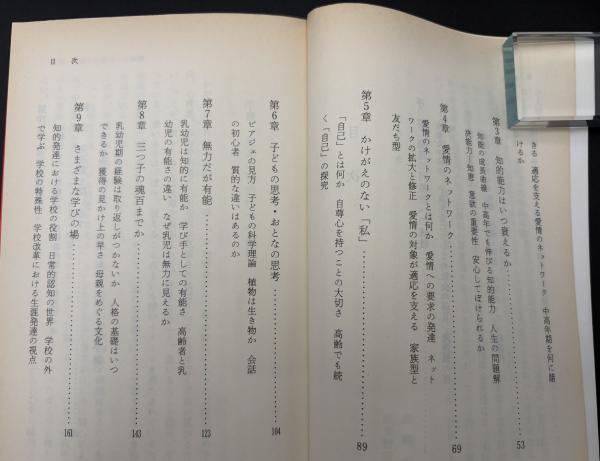 きる 適応を支える愛情のネットワーク 中高年期を何に賭
けるか
第3章 知的能力はいつ衰えるか……………53
知能の成長曲線 中高年でも伸びる知的能力 人生の問題解
決能力―知恵 意欲の重要性 安心してぼけられるか
第4章 愛情のネットワーク……………69
愛情のネットワークとは何か 愛情への要求の発達 ネット
ワークの拡大と修正 愛情の対象が適応を支える 家族型と
友だち型
第5章 かけがえのない「私」……………89
「自己」とは何か 自尊心を持つことの大切さ 高齢でも続
く「自己」の探究
目次
第6章 子どもの思考・おとなの思考……………104
ピアジェの見方 子どもの科学理論 植物は生き物か 会話
の初心者 質的な違いはあるのか
第7章 無力だが有能……………123
乳幼児は知的に有能か 学び手としての有能さ 高齢者と乳
幼児の有能さの違い なぜ乳児は無力に見えるか
第8章 三つ子の魂百までか……………143
乳幼児期の経験は取り返しがつかないか 人格の基礎はいつ
できるか 獲得の見かけ上の早さ 母親をめぐる文化
第9章 さまざまな学びの場……………161
知的発達における学校の役割 日常的認知の世界 学校の外
で学ぶ 学校の特殊性 学校改革における生涯発達の視点